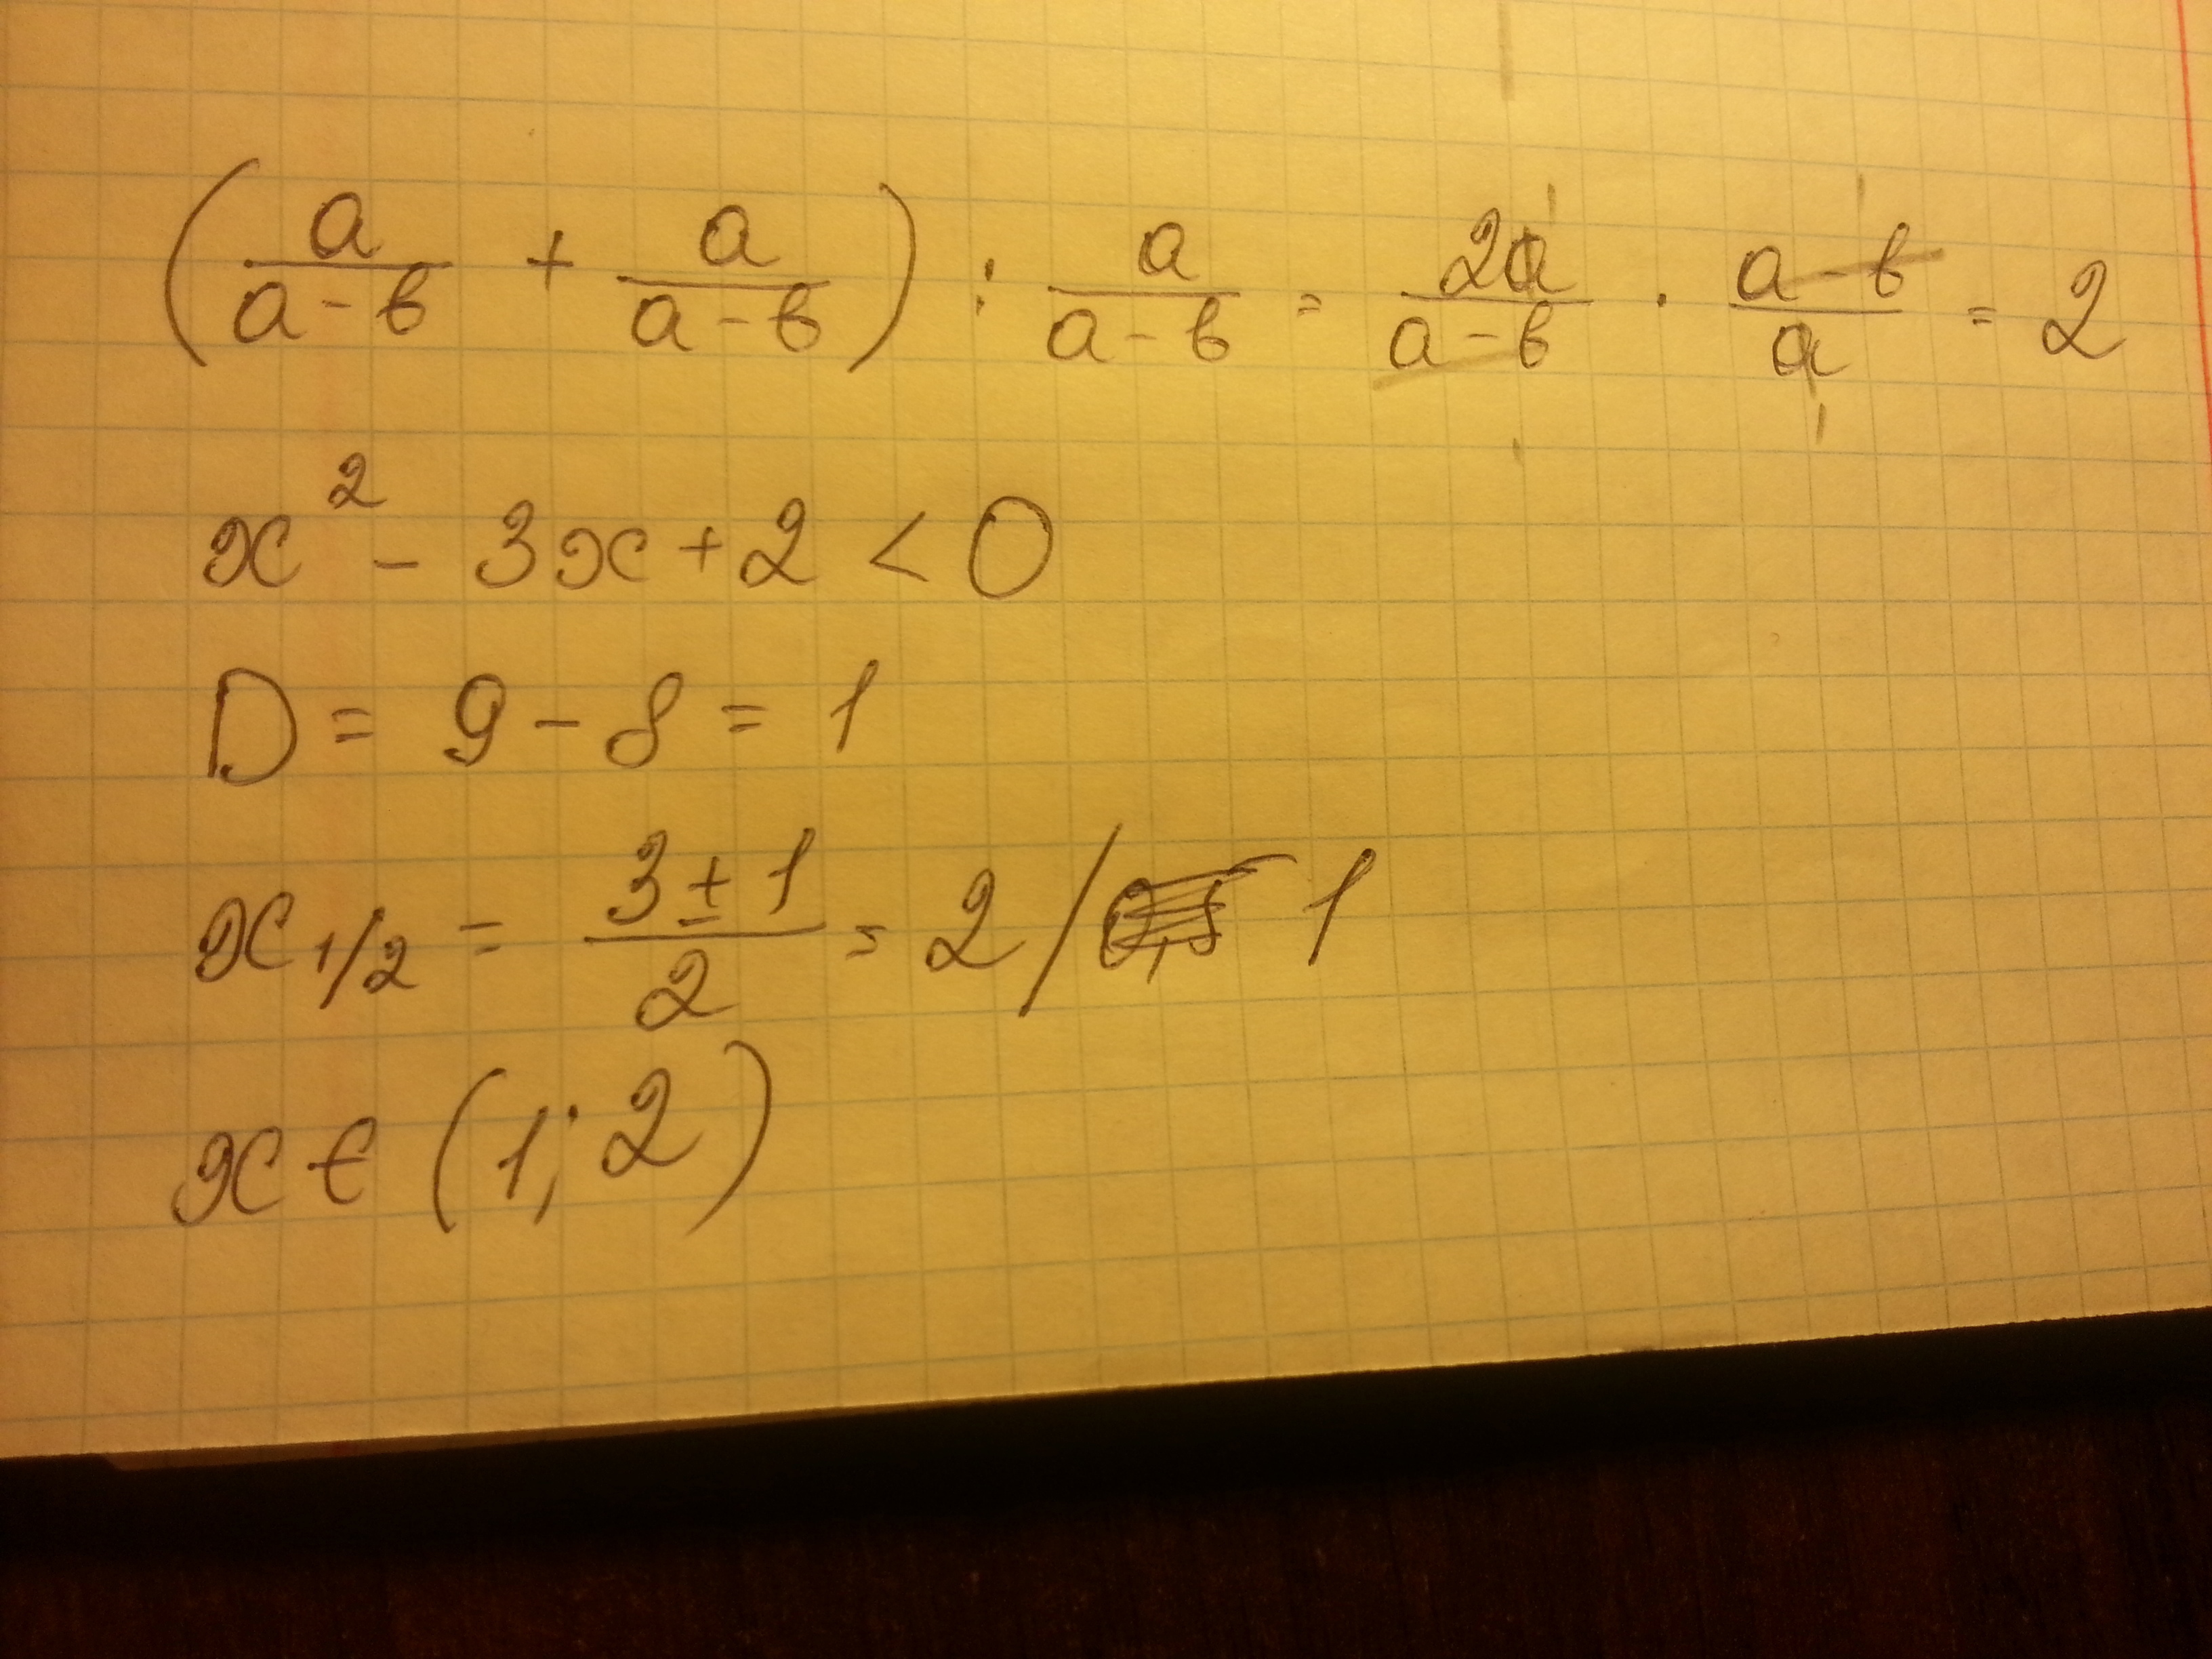 (a/(a-в) + a/(a-в)) : a/(a-в) = 2a/(a-в) · (a-в)/a = 2
x² - 3x + 2 < 0
D = 9 - 8 = 1
x₁/₂ = (3 ± 1)/2 = 2 / 1
x ∈ (1; 2)